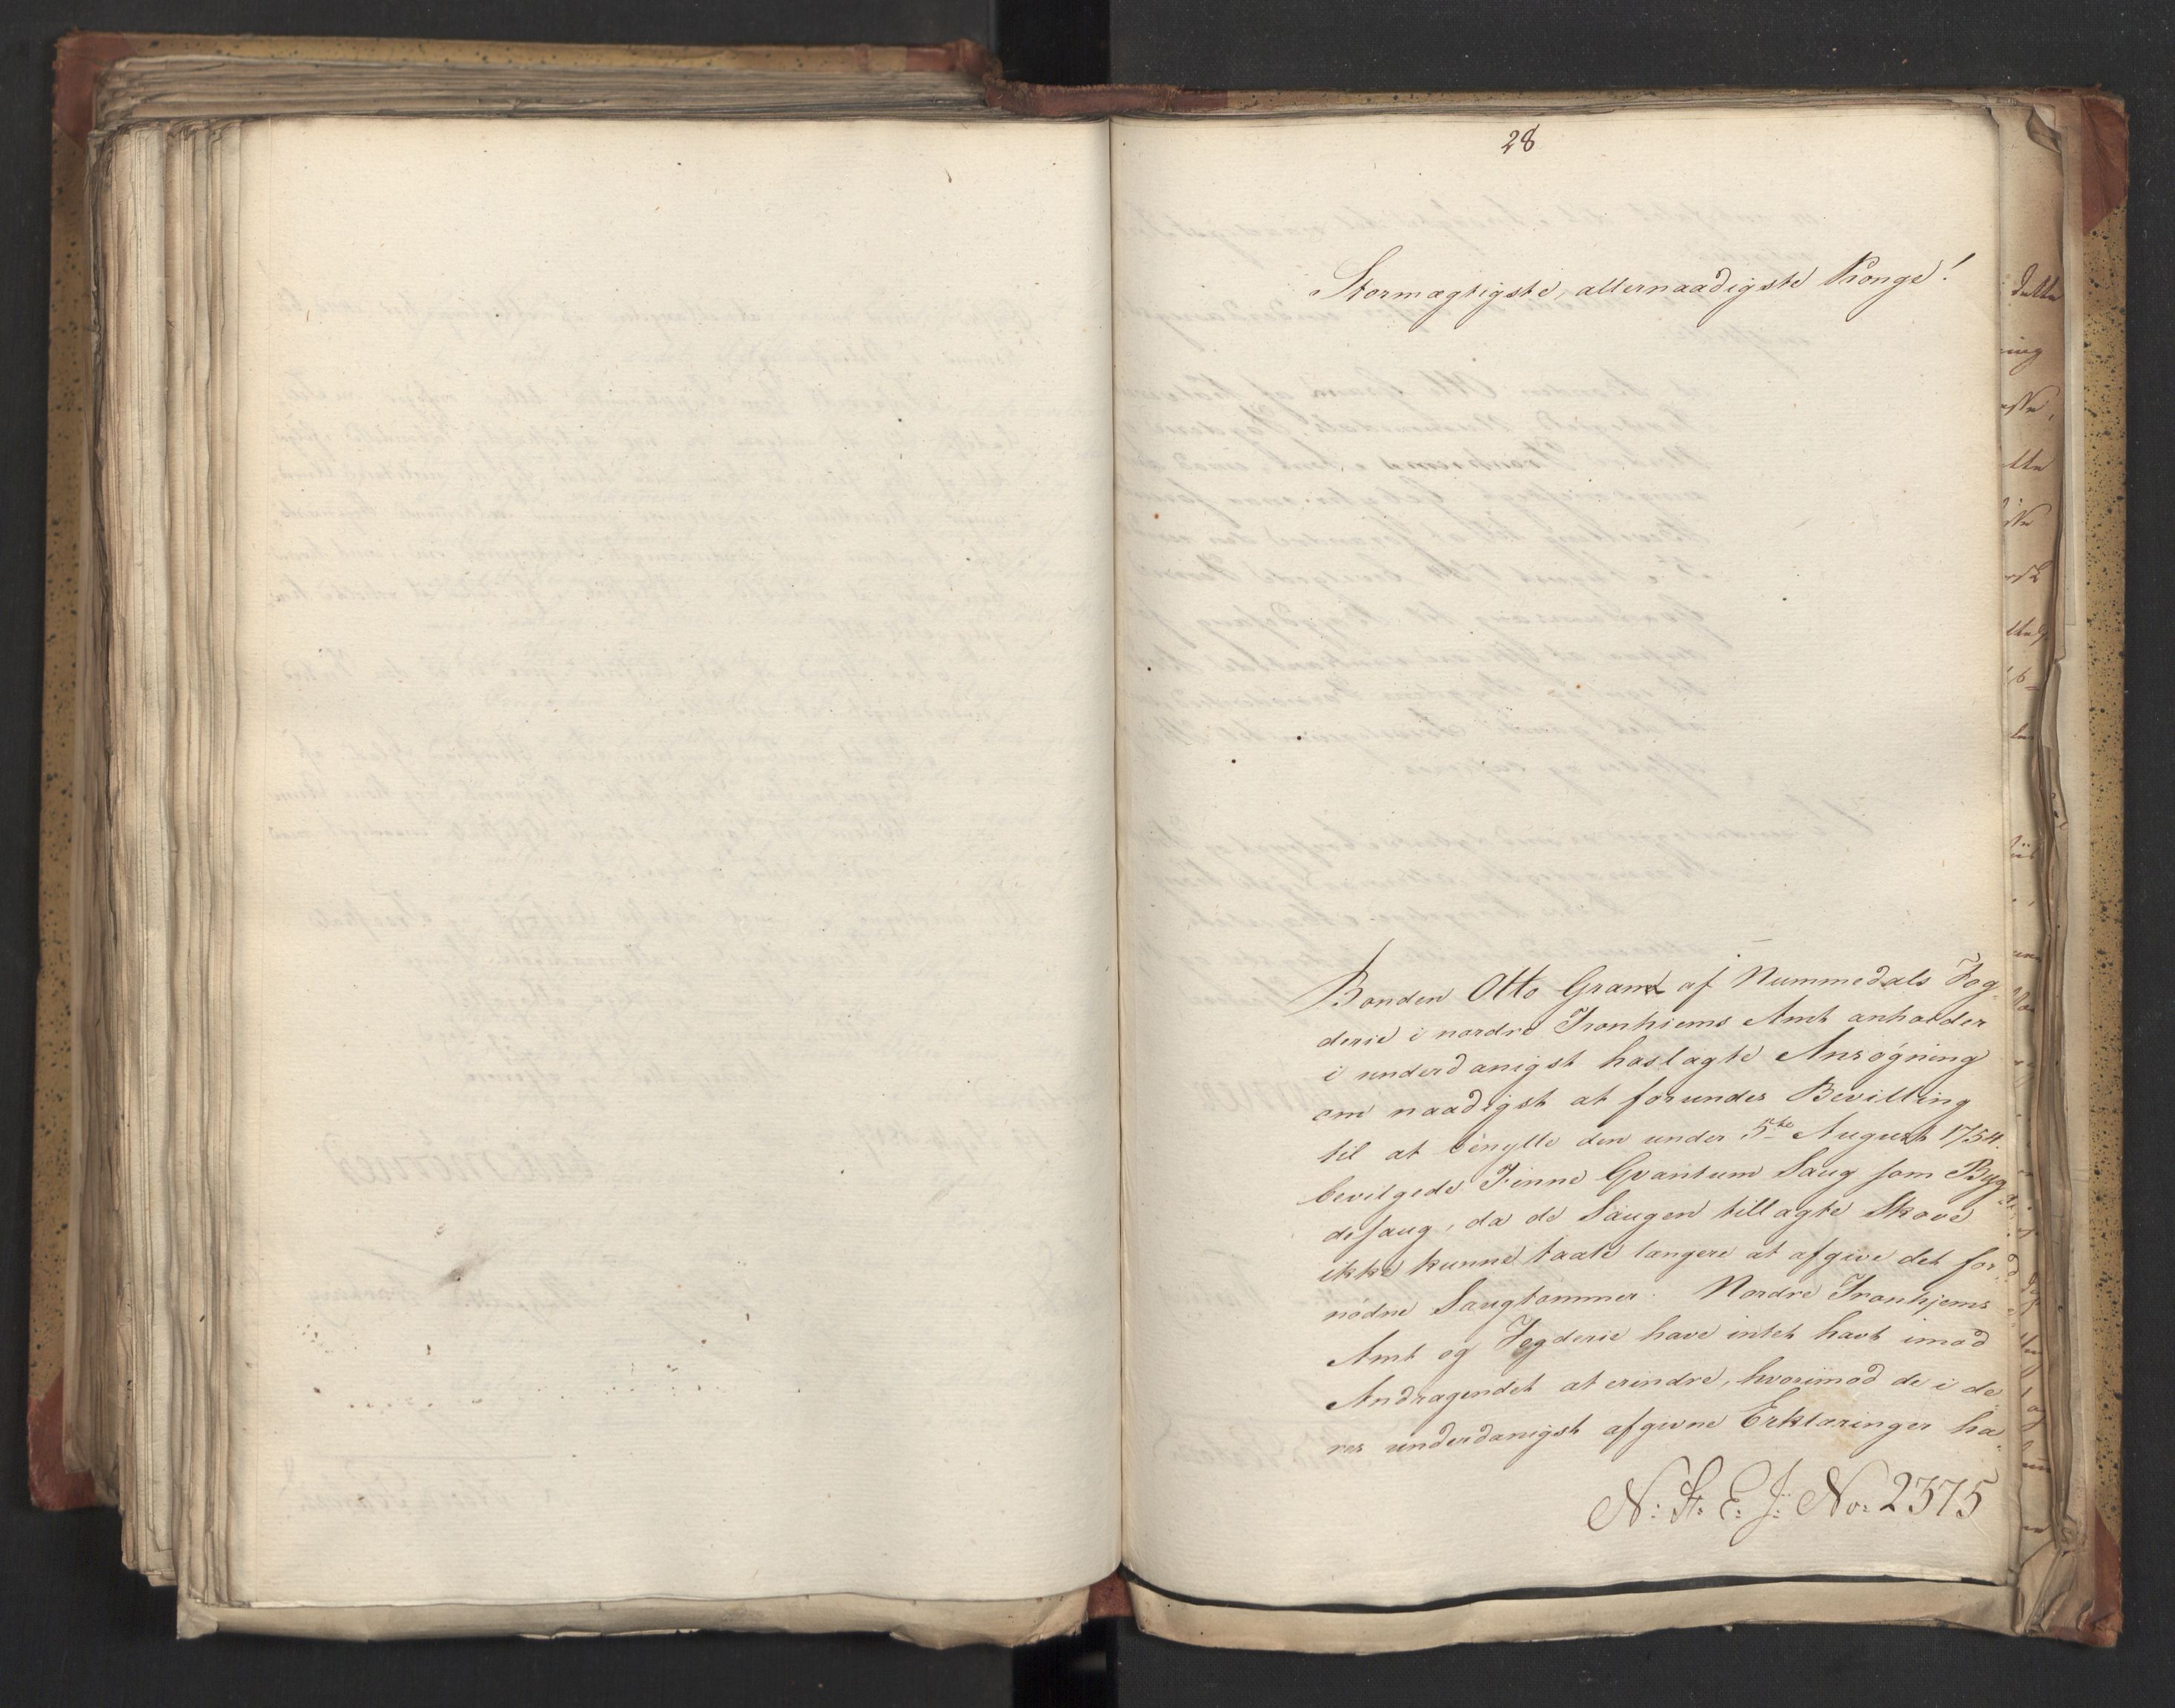 28
Stormægtigste, allernaadigste Konge!
Bonden Otto Gram af Nummedals Fog-
derie i nordre Tronhiems Amt anholder
i underdanigst hoslagte Ansøgning
om naadigst at forundes Bevilling
til at benytte den under 5te August 1754
bevilgede Finne Qvantum Saug som Byg-
desaug, da de Saugen tillagte Skove
ikke kunne taale længere at afgive det for-
nødne Saugtømmer. Nordre Tronhjems
Amt og Fogderie have intet havt imod
Andragendet at erindre, hvorimod de i de-
res underdanigst afgivne Erklæringer ha-
N: St: E: J: No: 2375